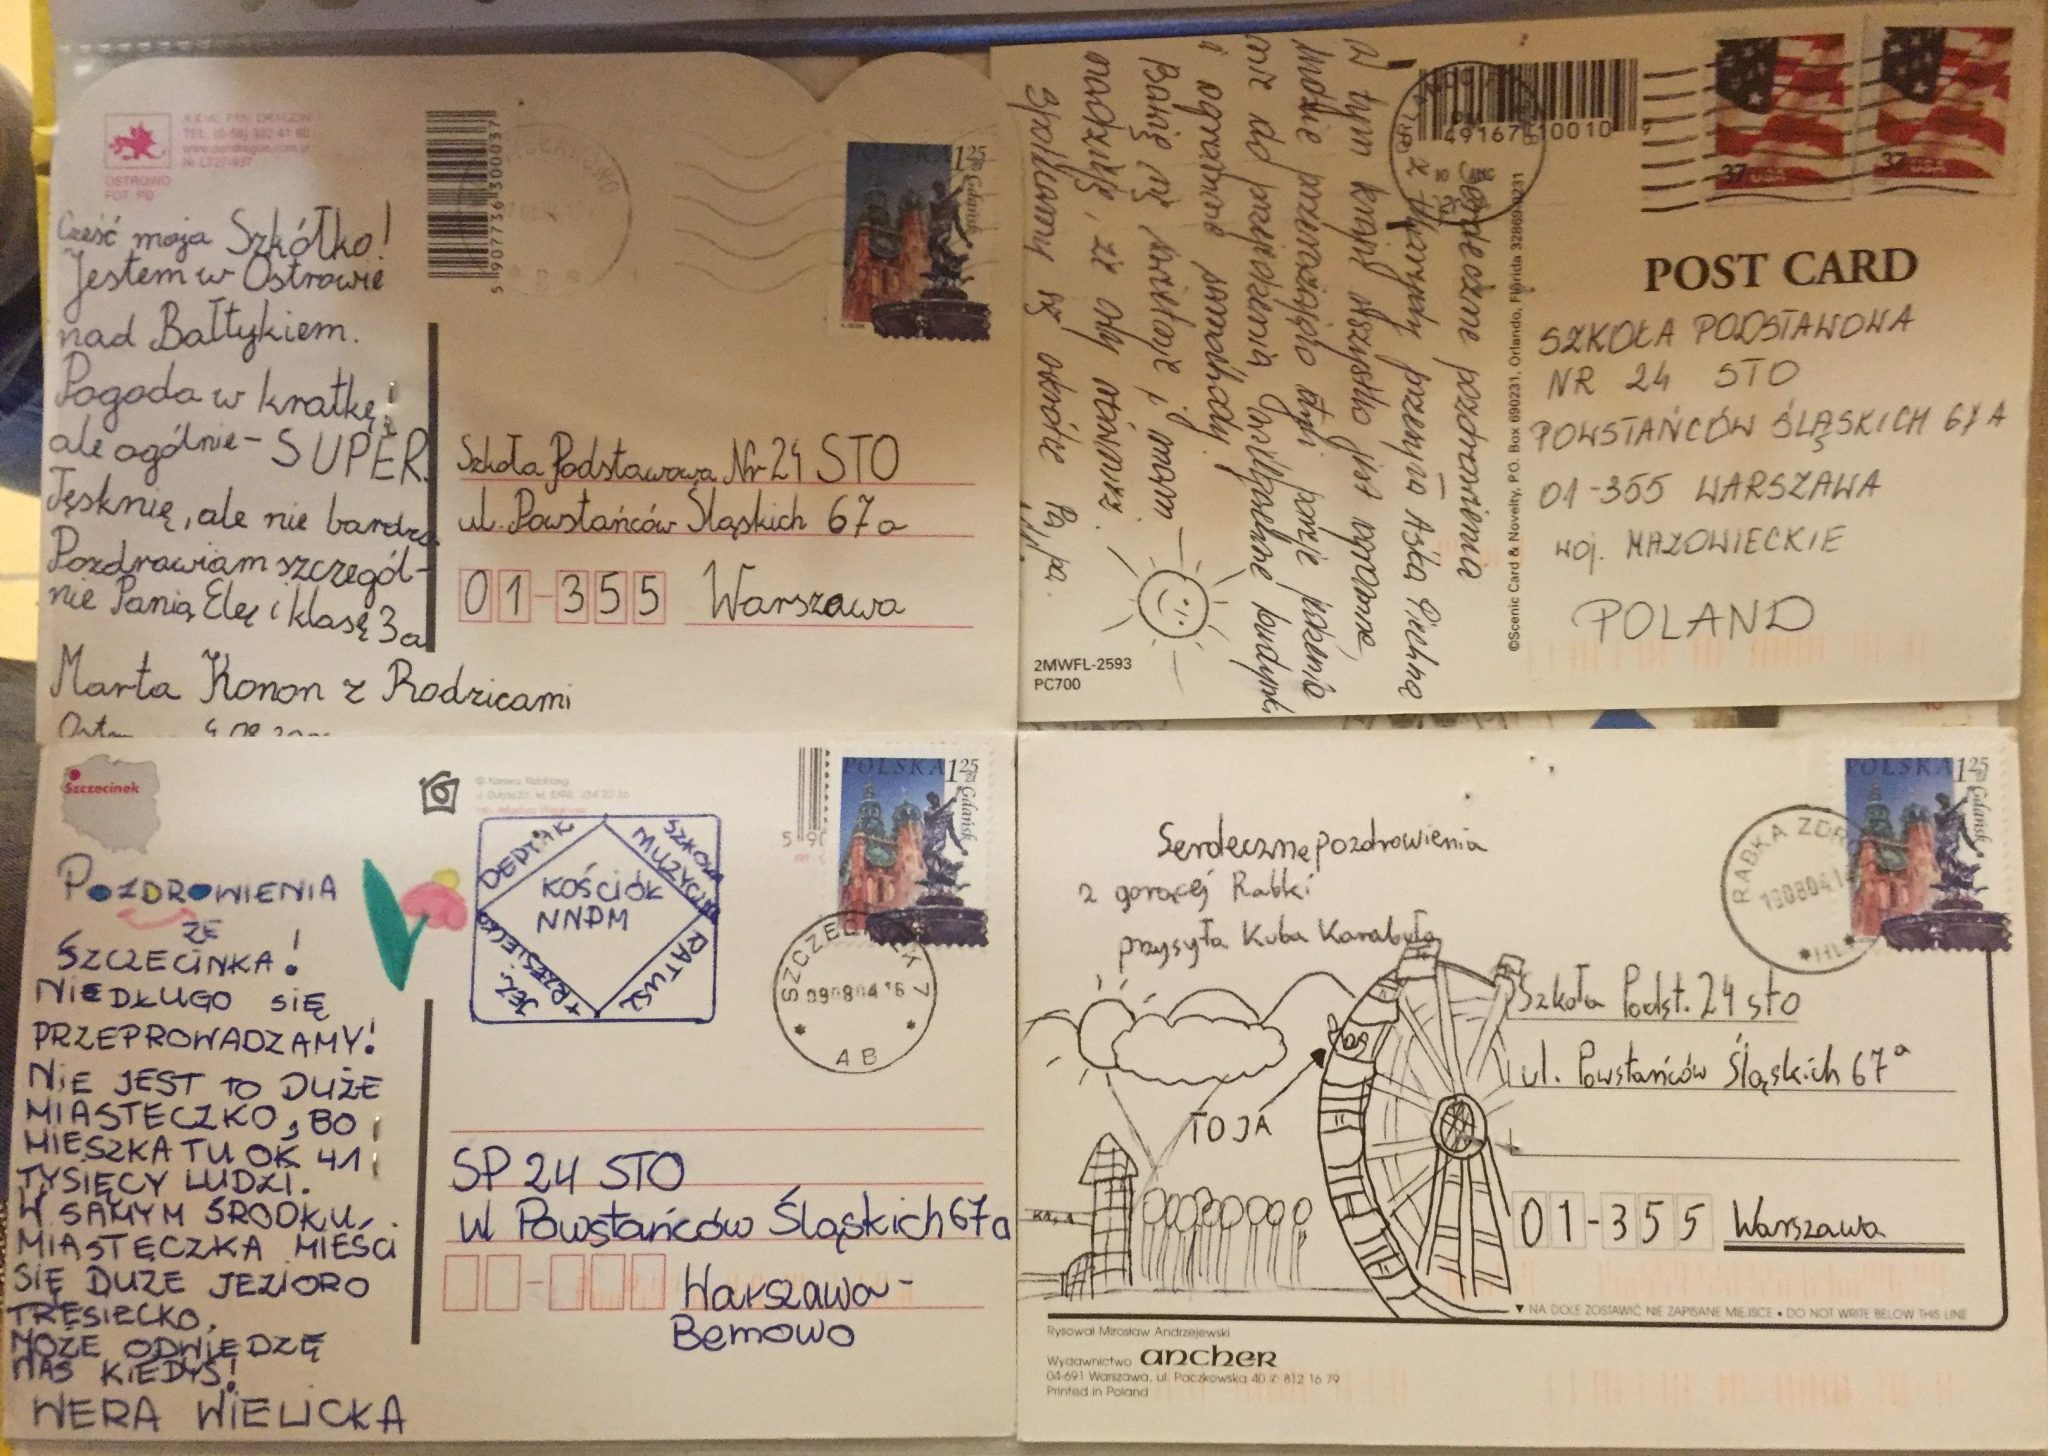 A.E.W. PAN DRAGON
TEL. (0-58) 302 41 60
OSTROWO
FOT: PD
5 907736 300037
POLSKA 1 25 zł
Gdańsk
Cześć moja Szkółko!
Jestem w Ostrowie
nad Bałtykiem.
Pogoda w kratkę!
ale ogólnie - SUPER.
Tęsknię, ale nie bardzo
Pozdrawiam szczegól-
nie Panią Elę i klasę 3a
Marta Konon z Rodzicami
Szkoła Podstawowa Nr 24 STO
ul. Powstańców Śląskich 67a
01-355 Warszawa
Serdeczne pozdrowienia
z przesyła Aśka
W tym kraju wszystko jest ogromne,
ludzie przerażająco tyją porcje jedzenia
nie do przejedzenia budynki
i ogromne samochody.
Bawię się świetnie i mam
nadzieję, że Wy również.
Spotkamy się wkrótce Pa, pa.
2MWFL-2593
PC700
©Scenic Card & Novelty, P.O. Box 690231, Orlando, Florida 32869-0231
49167 10010 9
37 USA
37 USA
POST CARD
SZKOŁA PODSTAWOWA
NR 24 STO
POWSTAŃCÓW ŚLĄSKICH 67A
01-355 WARSZAWA
woj. MAZOWIECKIE
POLAND
Szczecinek
POZDROWIENIA
ZE
SZCZECINKA!
NIEDŁUGO SIĘ
PRZEPROWADZAMY!
NIE JEST TO DUŻE
MIASTECZKO, BO
MIESZKA TU OK 41
TYSIĘCY LUDZI.
W SAMYM ŚRODKU
MIASTECZKA MIEŚCI
SIĘ DUŻE JEZIORO
TRĘSIECKO.
MOŻE ODWIEDZĘ
WAS KIEDYŚ!
WERA WIELICKA
DEPTAK
SZKOŁA
MUZYCZNA
KOŚCIÓŁ
NNPM
JEZ.
TRZESIECKO
RATUSZ
POLSKA 1 25 zł
Gdańsk
SZCZECINEK 7
090804 16
AB
SP 24 STO
ul Powstańców Śląskich 67a
Warszawa-
Bemowo
Serdeczne pozdrowienia
z gorącej Rabki
przysyła Kuba Karabuła
TO JA
POLSKA 1 25 zł
Gdańsk
RABKA ZDRÓJ
Szkoła Podst. 24 sto
ul. Powstańców Śląskich 67a
01-355 Warszawa
▼ NA DOLE ZOSTAWIĆ NIE ZAPISANE MIEJSCE • DO NOT WRITE BELOW THIS LINE
Rysował Mirosław Andrzejewski
Wydawnictwo ancher
04-691 Warszawa, ul. Paczkowska 40 ✆ 812 16 79
Printed in Poland